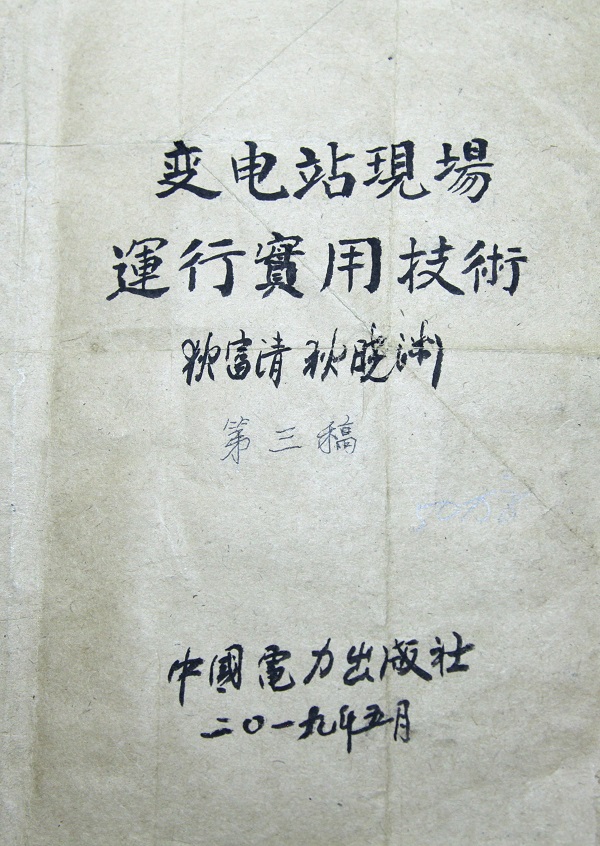 变电站現場
運行實用技術
狄富清 狄晓渊
第三稿
中國電力出版社
二〇一九年五月